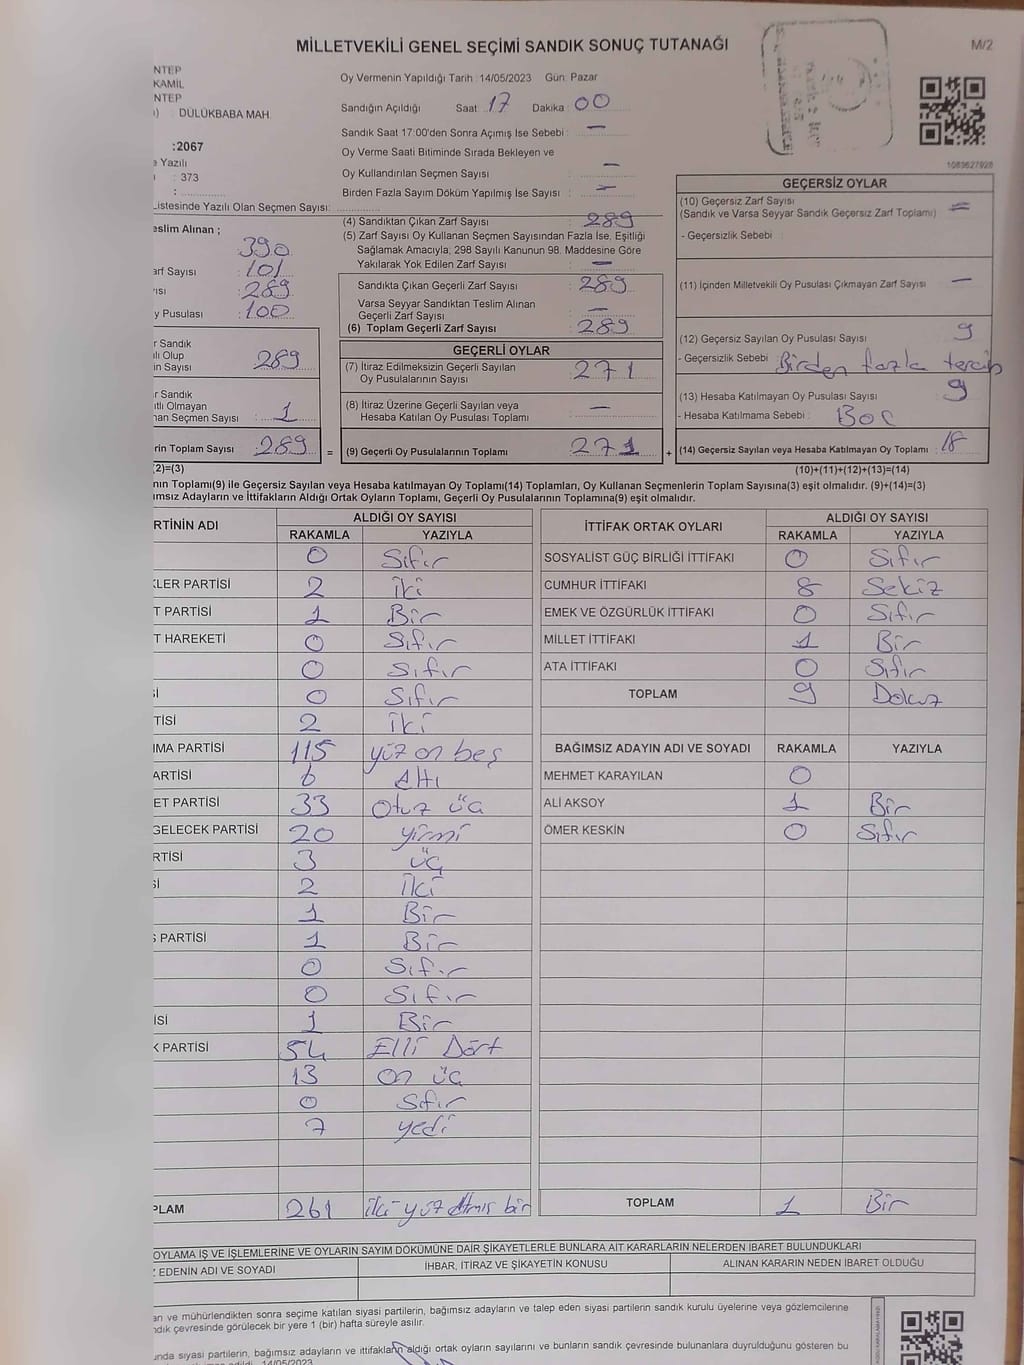 MİLLETVEKİLİ GENEL SEÇİMİ SANDIK SONUÇ TUTANAĞI
M/2
NTEP
KAMİL
NTEP
DÜLÜKBABA MAH.
:2067
Yazılı
: 373
Listesinde Yazılı Olan Seçmen Sayısı:
Oy Vermenin Yapıldığı Tarih :14/05/2023 Gün: Pazar
Sandığın Açıldığı Saat: 17 Dakika: 00
Sandık Saat 17:00'den Sonra Açımış İse Sebebi : —
Oy Verme Saati Bitiminde Sırada Bekleyen ve
Oy Kullandırılan Seçmen Sayısı : —
Birden Fazla Sayım Döküm Yapılmış İse Sayısı : —
1089627928
eslim Alınan ;
390
arf Sayısı : 101
ısı : 289
y Pusulası : 100
(4) Sandıktan Çıkan Zarf Sayısı : 289
(5) Zarf Sayısı Oy Kullanan Seçmen Sayısından Fazla İse, Eşitliği
Sağlamak Amacıyla, 298 Sayılı Kanunun 98. Maddesine Göre
Yakılarak Yok Edilen Zarf Sayısı : —
Sandıkta Çıkan Geçerli Zarf Sayısı : 289
Varsa Seyyar Sandıktan Teslim Alınan
Geçerli Zarf Sayısı : —
(6) Toplam Geçerli Zarf Sayısı : 289
GEÇERSİZ OYLAR
(10) Geçersiz Zarf Sayısı
(Sandık ve Varsa Seyyar Sandık Geçersiz Zarf Toplamı) : —
- Geçersizlik Sebebi :
(11) İçinden Milletvekili Oy Pusulası Çıkmayan Zarf Sayısı : —
(12) Geçersiz Sayılan Oy Pusulası Sayısı : 9
- Geçersizlik Sebebi : Birden fazla tercih
(13) Hesaba Katılmayan Oy Pusulası Sayısı : 9
- Hesaba Katılmama Sebebi : Boş
(14) Geçersiz Sayılan veya Hesaba Katılmayan Oy Toplamı : 18
r Sandık
lı Olup
in Sayısı : 289
r Sandık
tlı Olmayan
nan Seçmen Sayısı : 1
rin Toplam Sayısı : 289 =
GEÇERLİ OYLAR
(7) İtiraz Edilmeksizin Geçerli Sayılan
Oy Pusulalarının Sayısı : 271
(8) İtiraz Üzerine Geçerli Sayılan veya
Hesaba Katılan Oy Pusulası Toplamı : —
(9) Geçerli Oy Pusulalarının Toplamı : 271 +
(2)=(3)
(10)+(11)+(12)+(13)=(14)
nın Toplamı(9) ile Geçersiz Sayılan veya Hesaba katılmayan Oy Toplamı(14) Toplamları, Oy Kullanan Seçmenlerin Toplam Sayısına(3) eşit olmalıdır. (9)+(14)=(3)
ımsız Adayların ve İttifakların Aldığı Ortak Oyların Toplamı, Geçerli Oy Pusulalarının Toplamına(9) eşit olmalıdır.
RTİNİN ADI ALDIĞI OY SAYISI
RAKAMLA YAZIYLA
0 Sıfır
KLER PARTİSİ 2 İki
T PARTİSİ 1 Bir
T HAREKETİ 0 Sıfır
0 Sıfır
Sİ 0 Sıfır
TİSİ 2 İki
IMA PARTİSİ 115 yüz on beş
ARTİSİ 6 Altı
ET PARTİSİ 33 Otuz üç
GELECEK PARTİSİ 20 yirmi
RTİSİ 3 üç
Sİ 2 İki
1 Bir
Ş PARTİSİ 1 Bir
0 Sıfır
0 Sıfır
İSİ 1 Bir
K PARTİSİ 54 Elli Dört
13 on üç
0 Sıfır
7 yedi
PLAM 261 iki yüz Atmış bir
İTTİFAK ORTAK OYLARI ALDIĞI OY SAYISI
RAKAMLA YAZIYLA
SOSYALİST GÜÇ BİRLİĞİ İTTİFAKI 0 Sıfır
CUMHUR İTTİFAKI 8 Sekiz
EMEK VE ÖZGÜRLÜK İTTİFAKI 0 Sıfır
MİLLET İTTİFAKI 1 Bir
ATA İTTİFAKI 0 Sıfır
TOPLAM 9 Dokuz
BAĞIMSIZ ADAYIN ADI VE SOYADI RAKAMLA YAZIYLA
MEHMET KARAYILAN 0
ALİ AKSOY 1 Bir
ÖMER KESKİN 0 Sıfır
TOPLAM 1 Bir
OYLAMA İŞ VE İŞLEMLERİNE VE OYLARIN SAYIM DÖKÜMÜNE DAİR ŞİKAYETLERLE BUNLARA AİT KARARLARIN NELERDEN İBARET BULUNDUKLARI
EDENİN ADI VE SOYADI İHBAR, İTİRAZ VE ŞİKAYETİN KONUSU ALINAN KARARIN NEDEN İBARET OLDUĞU
an ve mühürlendikten sonra seçime katılan siyasi partilerin, bağımsız adayların ve talep eden siyasi partilerin sandık kurulu üyelerine veya gözlemcilerine
ndık çevresinde görülecek bir yere 1 (bir) hafta süreyle asılır.
unda siyasi partilerin, bağımsız adayların ve ittifakların aldığı ortak oyların sayılarını ve bunların sandık çevresinde bulunanlara duyrulduğunu gösteren bu
14/05/2023